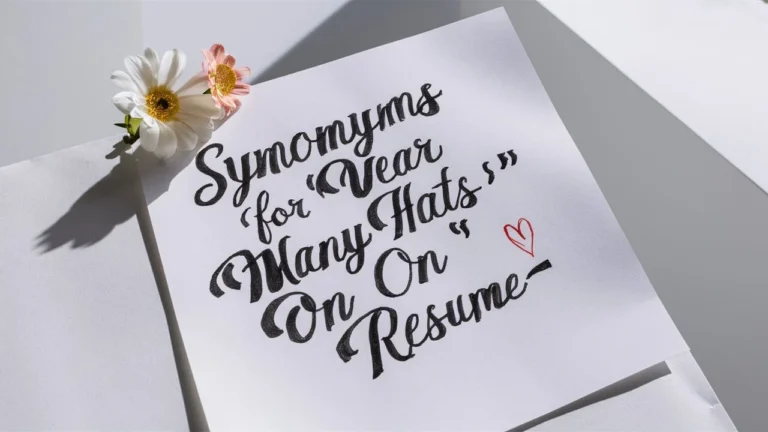 Symomyms
‘for ‘Vear
Many Hats’’”
On On “
Resume-